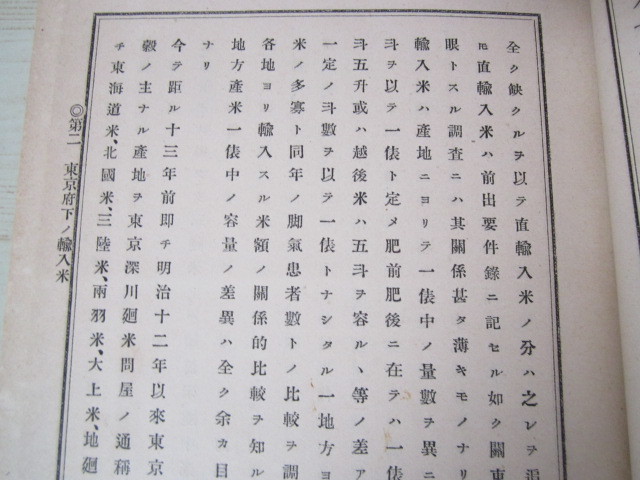 全ク缺クルヲ以テ直輸入米ノ分ハ之レヲ
𪜈直輸入米ハ前出要件錄ニ記セル如ク關東
眼トスル調査ニハ其關係甚タ薄キモノナリ
輸入米ハ產地ニヨリテ一俵中ノ量數ヲ異ニ
斗ヲ以テ一俵ト定メ肥前肥後ニ在テハ一俵
斗五升或ハ越後米ハ五斗ヲ容ルヽ等ノ差ア
一定ノ斗數ヲ以テ一俵トナシタル一地方ヨ
米ノ多寡ト同年ノ脚氣患者數トノ比較ヲ調
各地ヨリ輸入スル米額ノ關係的比較ヲ知ル
地方產米一俵中ノ容量ノ差異ハ全ク余カ目
ナリ
今テ距ル十三年前卽チ明治十二年以來東京
穀ノ主ナル產地ヲ東京深川廻米問屋ノ通稱
チ東海道米、北國米、三陸米、兩羽米、大上米、地廻
◎第二 東京府下ノ輸入米